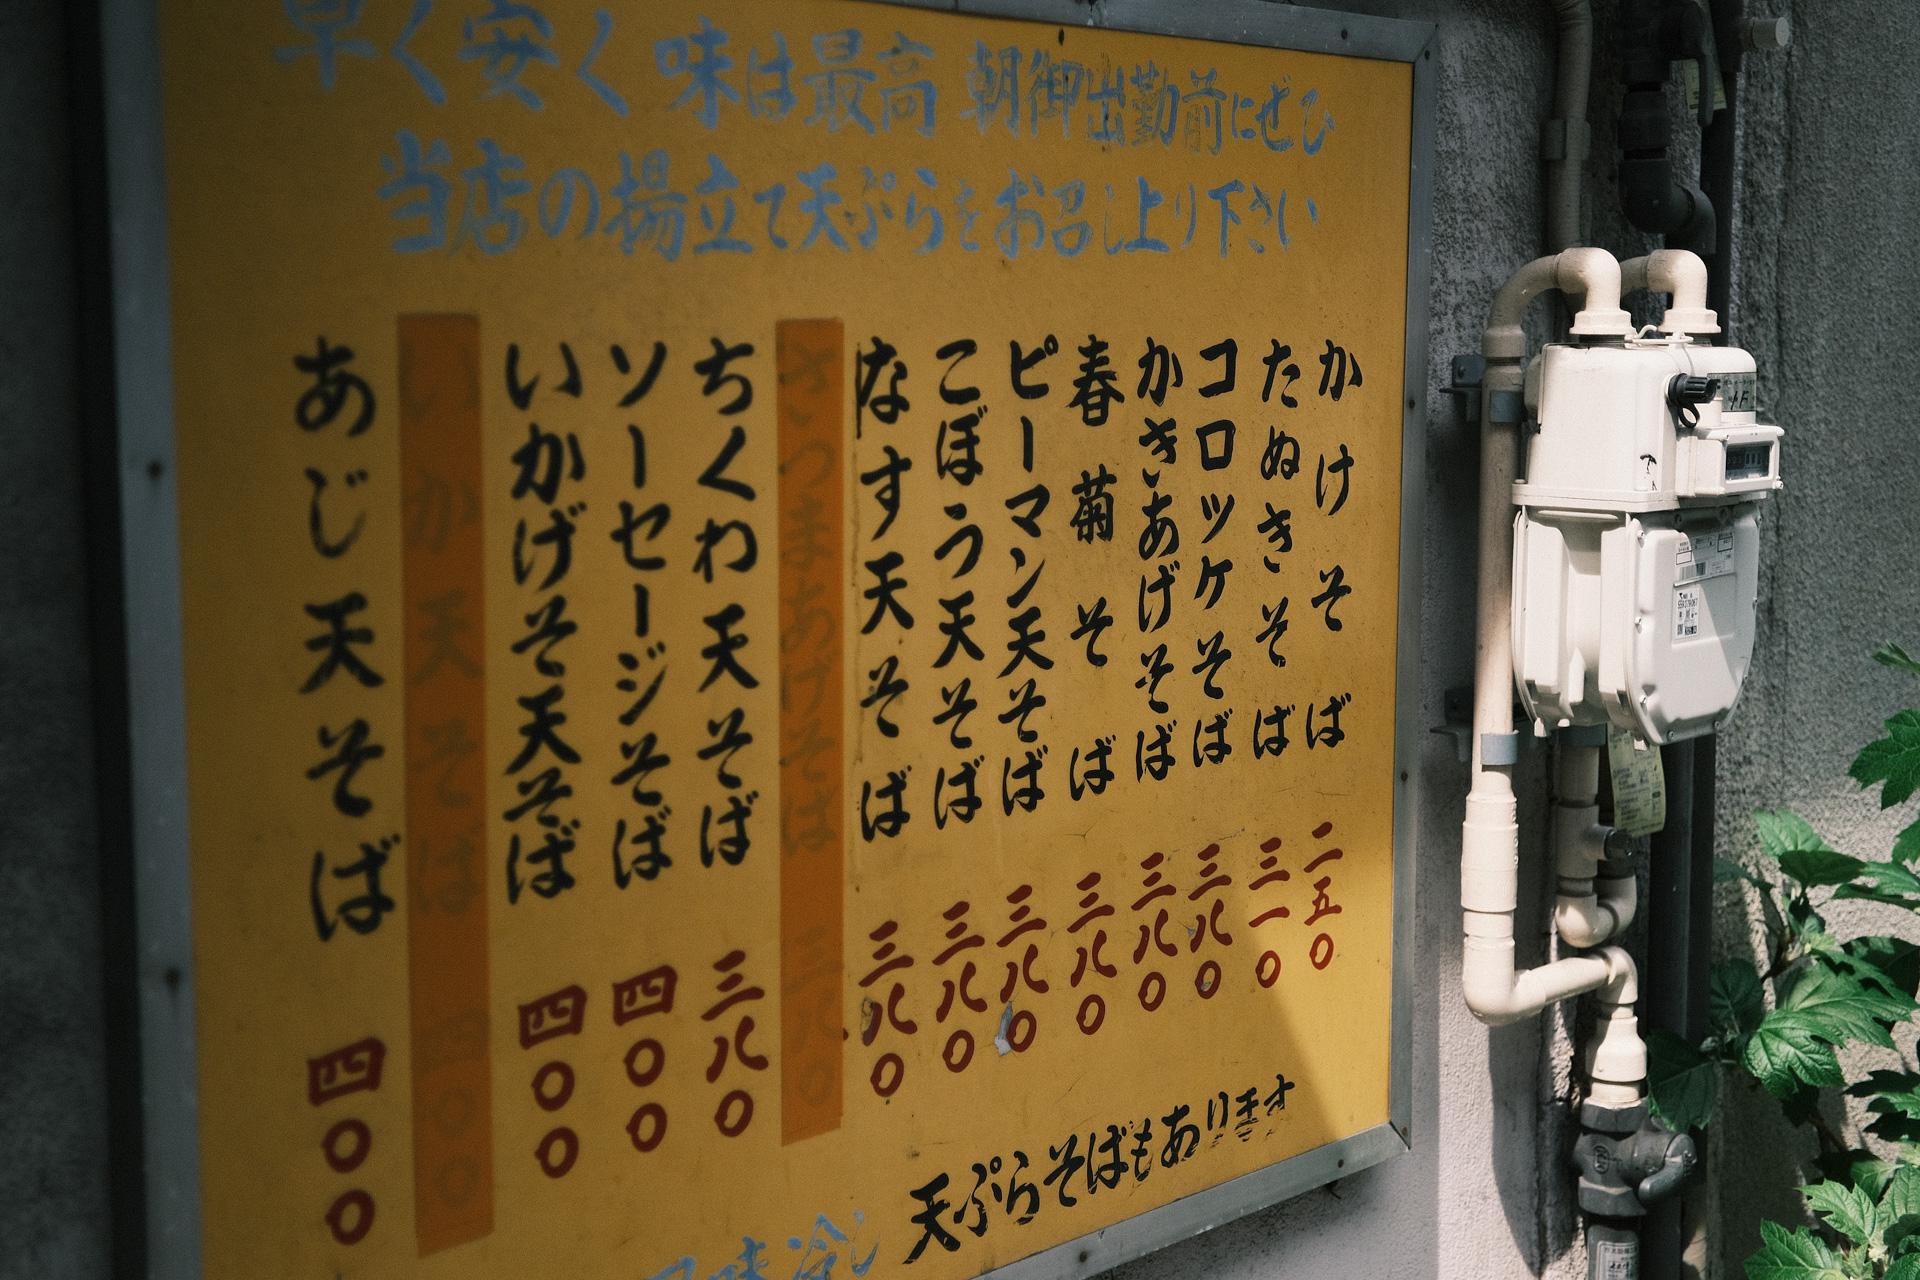 早く安く味は最高 朝御出勤前にぜひ
当店の揚立て天ぷらをお召し上り下さい
かけそば 二五〇
たぬきそば 三一〇
コロッケそば 三八〇
かきあげそば 三八〇
春菊そば 三八〇
ピーマン天そば 三八〇
ごぼう天そば 三八〇
なす天そば 三八〇
さつまあげそば 三八〇
ちくわ天そば 三八〇
ソーセージそば 四〇〇
いかげそ天そば 四〇〇
いか天そば 四〇〇
あじ天そば 四〇〇
天ぷらそばもあります
冷し